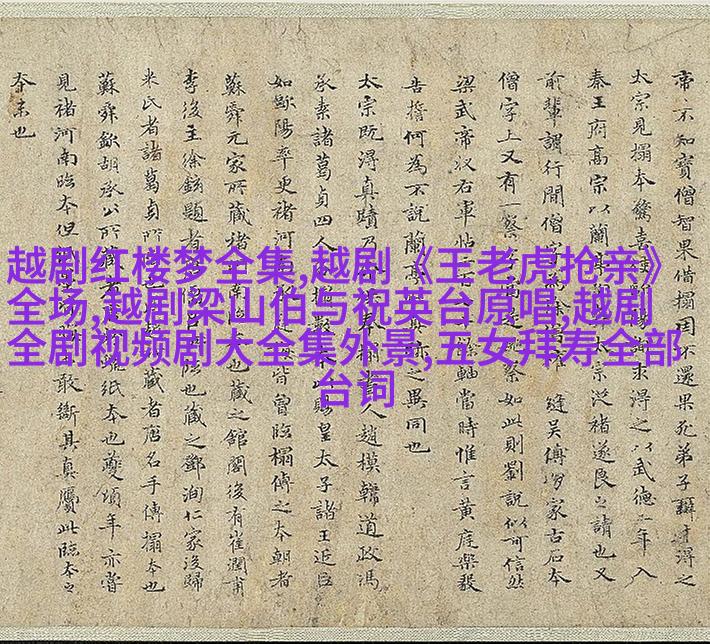 越剧红楼梦全集,越剧《王老虎抢亲》
全场,越剧梁山伯与祝英台原唱,越剧
全剧视频剧大全集外景,五女拜寿全部
台词
帝不知寳僧智果借搨因不還果死弟子辯才得之
太宗見搨本驚喜求得之以武德二年入
秦王府高宗以蘭太宗從褚遂良之請也又
前輩謂行間僧字為縫吴傅朋家古石本
僧字上又有一察字察如此則劉説似可信然
梁武帝収右軍帖二百軸當時惟言黄庭樂毅
告誓何為不説蘭亭真跡之異同也
太宗既得真蹟乃人趙模韓道政馮
承素諸葛貞四人賜皇太子諸王近臣
如歐陽率更褚河南皆曾臨搨傳之本朝者
蘇舜元家所藏褚也藏之館閣後有崔潤甫
李後主徐鉉題者也藏之鄧洵仁家後歸
米氏者諸葛貞所藏者唐名手傳搨本也
蘇舜欽胡承公所藏者紙本也夔頃年亦嘗
見褚河南臨本但敢斷其真贋此臨本之
夲末也